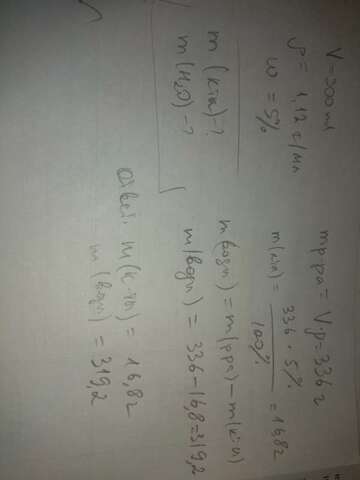 V = 300 мл
ρ = 1,12 г/мл
ω = 5%
m(к-та)-?
m(H₂O)-?
mр-ра = V·ρ = 336 г
m(к-ты) = 336 · 5% / 100% = 16,8 г
m(воды) = m(р-ра) - m(к-ты)
m(воды) = 336 - 16,8 = 319,2
Ответ: m(к-ты) = 16,8 г
m(воды) = 319,2